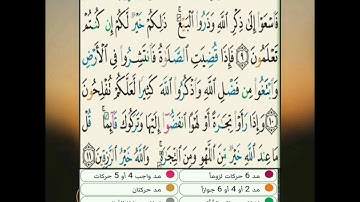 فَاسْعَوْا إِلَىٰ ذِكْرِ اللَّهِ وَذَرُوا الْبَيْعَ ۚ ذَٰلِكُمْ خَيْرٌ لَكُمْ إِن كُنتُمْ
تَعْلَمُونَ ٩ فَإِذَا قُضِيَتِ الصَّلَوٰةُ فَانتَشِرُوا فِي الْأَرْضِ
وَابْتَغُوا مِن فَضْلِ اللَّهِ وَاذْكُرُوا اللَّهَ كَثِيرًا لَعَلَّكُمْ تُفْلِحُونَ
١٠ وَإِذَا رَأَوْا تِجَٰرَةً أَوْ لَهْوًا انفَضُّوا إِلَيْهَا وَتَرَكُوكَ قَائِمًا ۚ قُلْ
مَا عِندَ اللَّهِ خَيْرٌ مِّنَ اللَّهْوِ وَمِنَ التِّجَٰرَةِ ۚ وَاللَّهُ خَيْرُ الرَّٰزِقِينَ ١١
مد 6 حركات لزوماً مد واجب 4 أو 5 حركات
مد 2 أو 4 أو 6 جوازاً مد حركتان